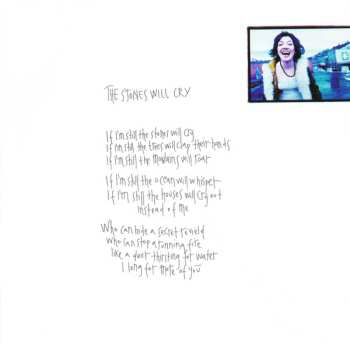 THE STONES WILL CRY
If I'm still the stones will cry
If I'm still the trees will clap their hands
If I'm still the will roar
If I'm still the ocean will whisper
If I'm still the houses will cry out
instead of me
Who can hide a secret
who can stop a running fire
like a deer thirsting for water
I long for more of you